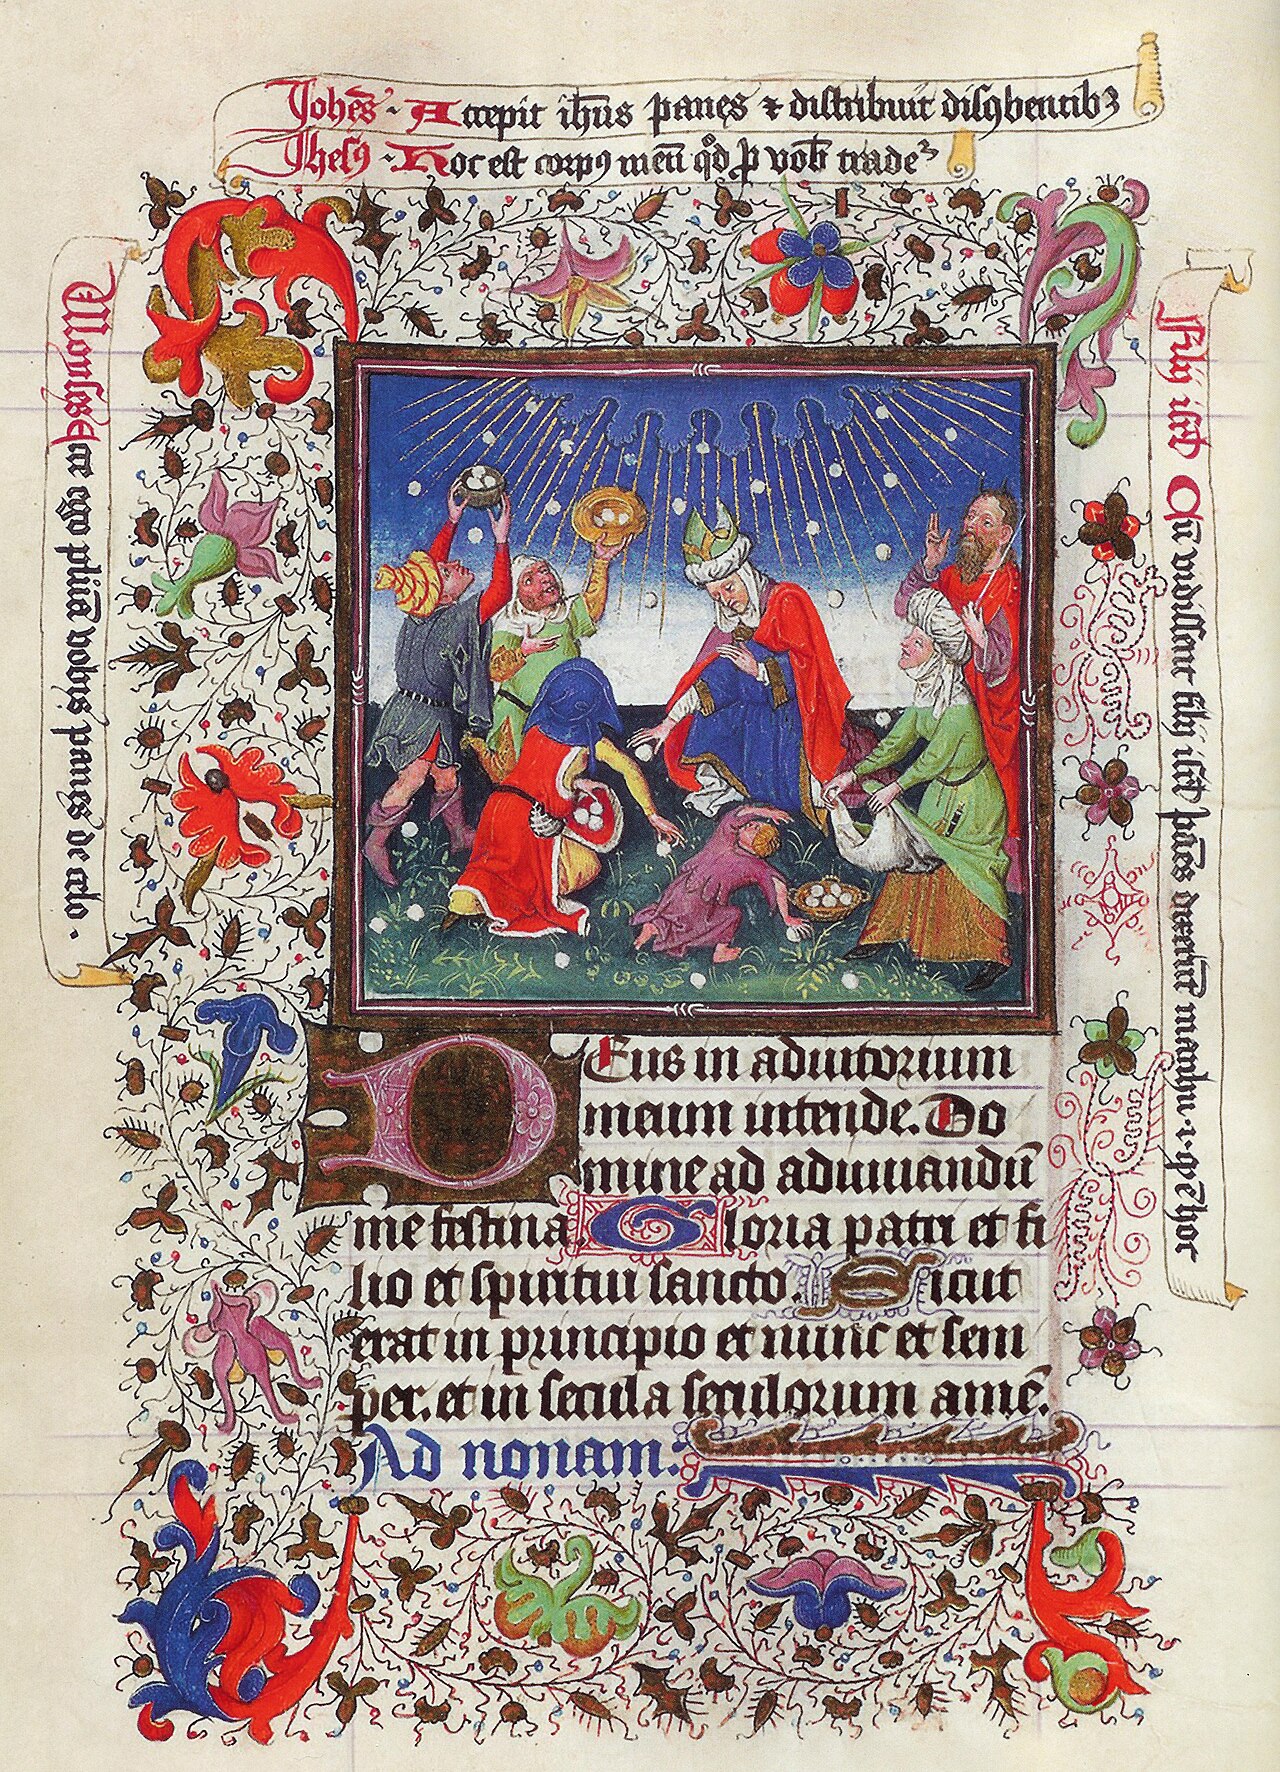 Joh̄es · Accepit ih̄us panes ⁊ distribuit discūbentibꝫ
Jhesꝯ · Hoc est corpꝯ meū qd̊ ꝓ vob̄
Moyses Ecce ego pluā vobis panes de celo .
filij isrl̄ Qd̄ vidissent filij isrl̄
Deus in adiutorium
meum intende. Do
mine ad adiuuandū
me festina. Gloria patri et fi
lio et spiritui sancto. Sicut
erat in principio et nunc et sem
per. et in secula seculorum amē.
Ad nonam.